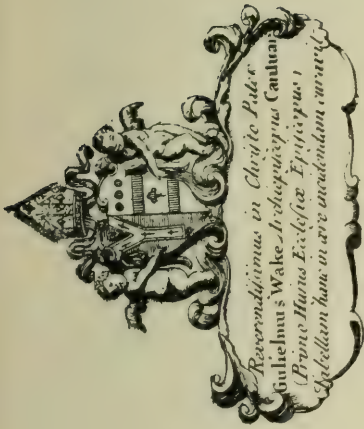 Reverendissimus in Christo Pater
Gulielmus Wake Archiepiscopus Cantuar:
(Primo Huius Ecclesiæ Episcopus)
Tabellam hanc in ære incidendam curavit